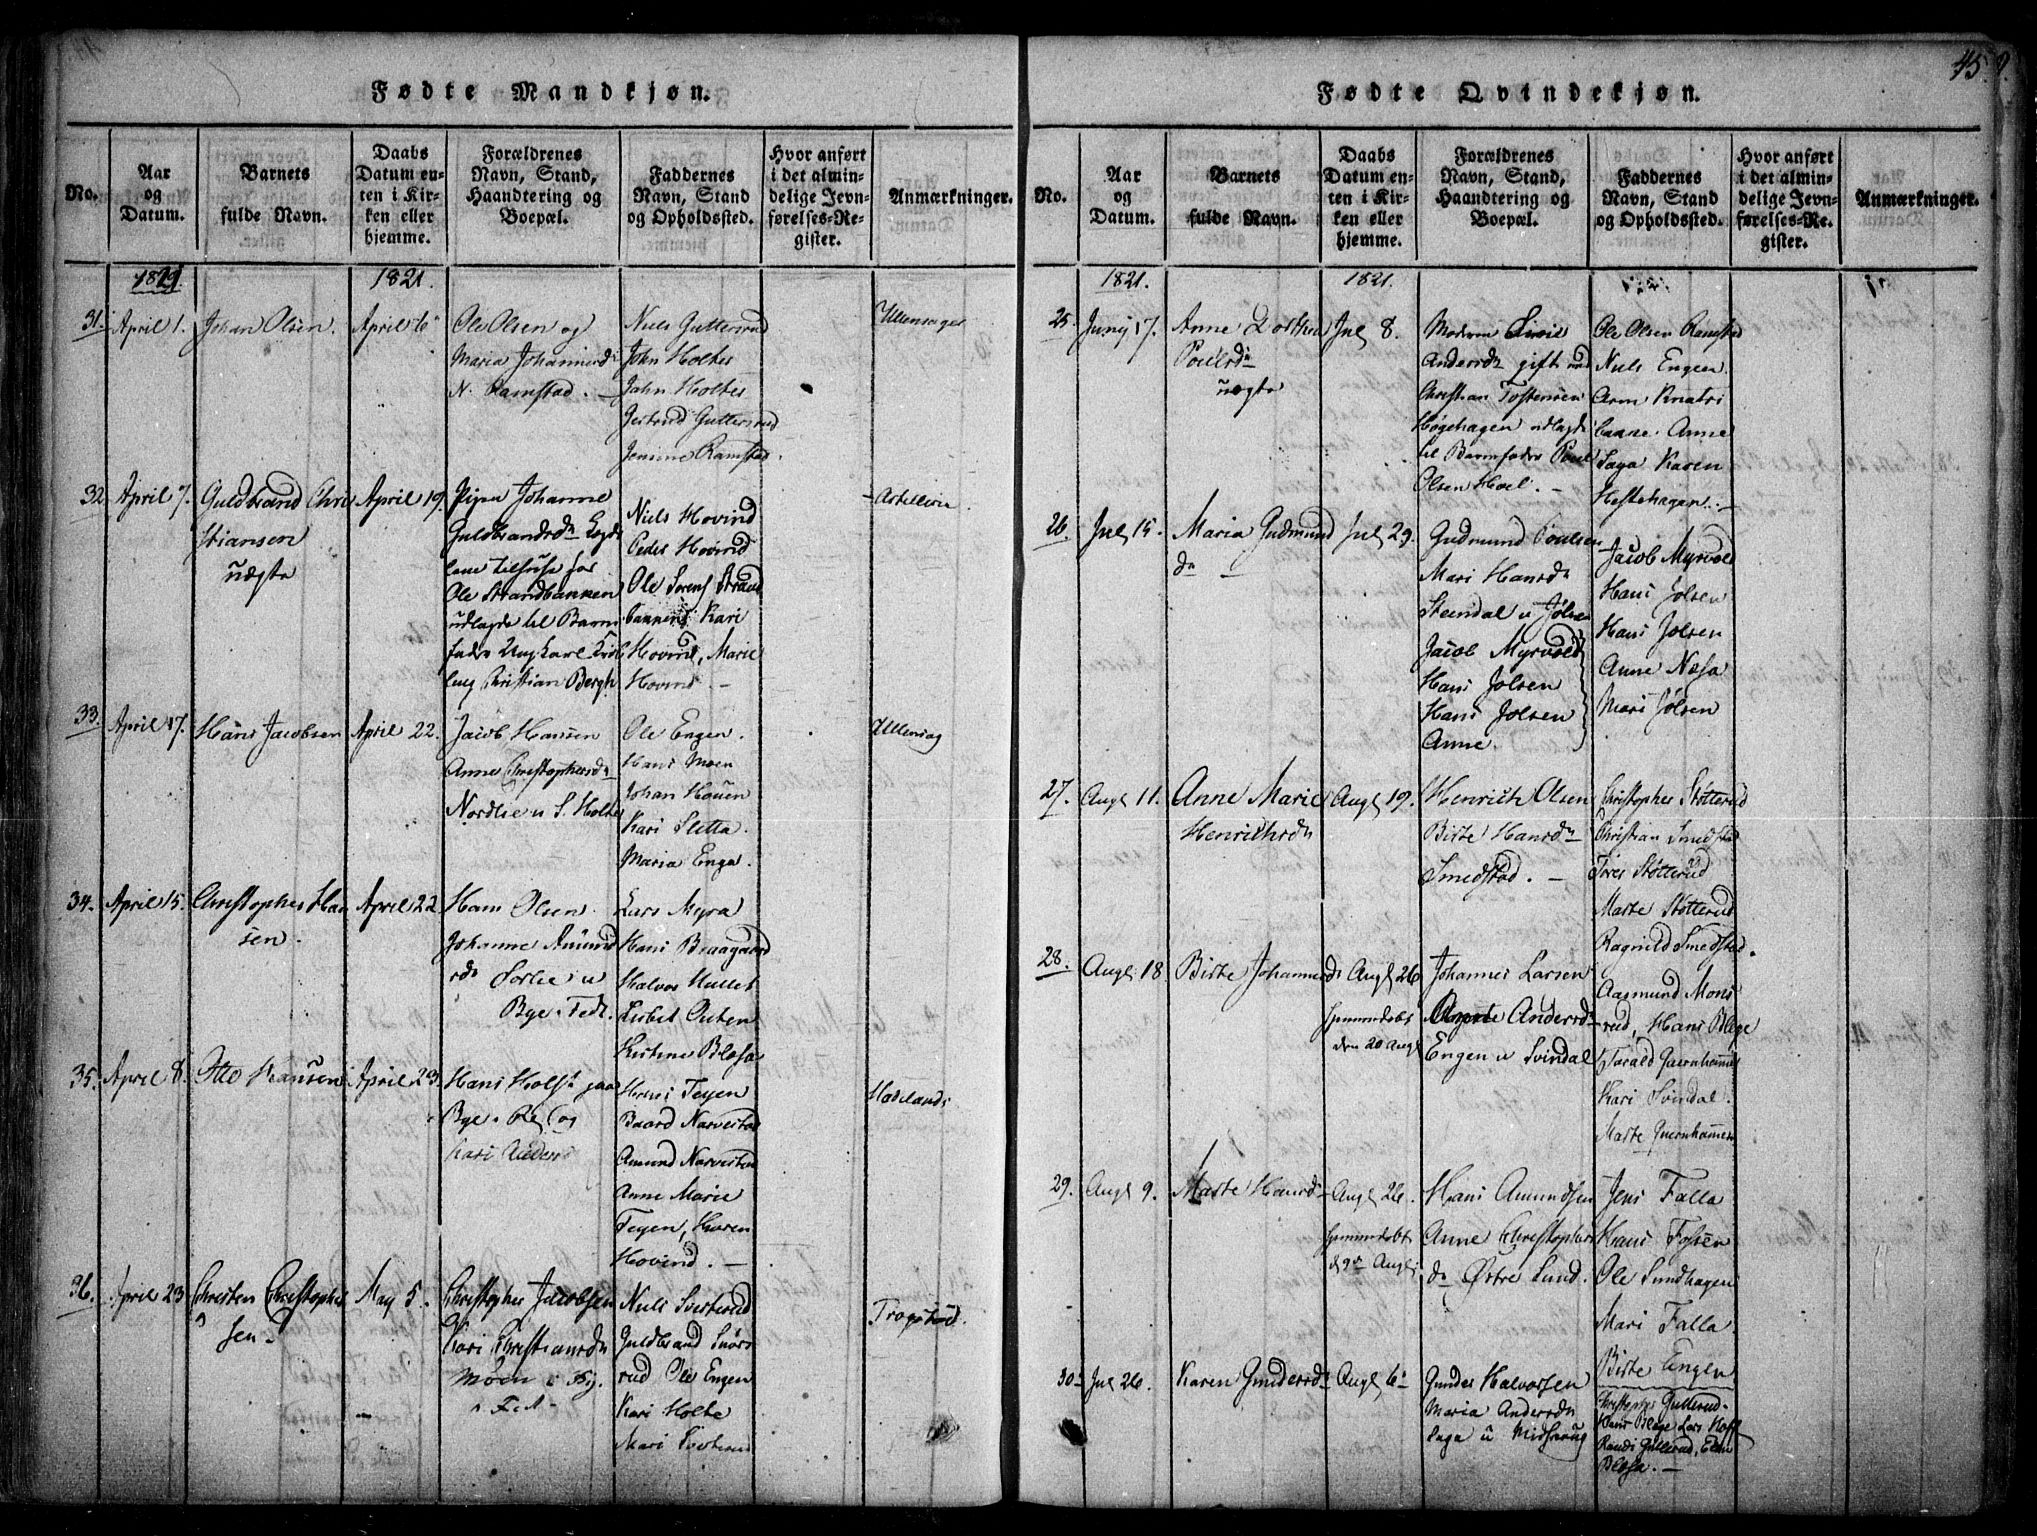 45.
Fødte Mandkjøn.
No.
Aar og Datum.
Barnets fulde Navn.
Daabs Datum enten i Kirken eller hjemme.
Forældrenes Navn, Stand, Haandtering og Boepæl.
Faddernes Navn, Stand og Opholdssted.
Hvor anført i det almindelige Jevnførelses-Register.
Anmærkninger.
1821.
1821.
31. April 1.
Johan Olsen.
April 6
Ole Olsen og
Maria Johannesd
N. Ramstad.
Niels Guttersrud
John Holter
John Holter
Jertrud Guttersrud
Ramstad.
Ullensager
32. April 7.
Guldbrand Chri
stiansen
uægte
April 19.
Pigen Johanne
Guldbrandsdr
Ole Strandbakken
udlagde til Barn
fader Ungkarl
Christian Bergh
Niels Hovind
Peder Hovind
Ole
Kari
Hovind, Marie
Hovind.
33. April 17.
Hans Jacobsen
April 22.
Jacob Hansen
Anne Christophersdr
Nordlie u S. Holter
Ole Engen.
Hans Moen
Johan Houen
Kari Sletta.
Maria Engen.
Ullensag
34. April 15.
Christopher Han
sen.
April 22
Hans Olsen.
Johanne Amund
sdr Sorlie u
Bye i Fedt.
Lars Myra
Hans Braagaard
Halvor Hullet
Lisbet Outen
Kirstine Blesa
35. April 8.
Otto Hansen
April 23.
Hans Holst paa
Bye og
Kari Andersd
Teyen
Baard Narvestad
Amund Narvestad
Anne Marie
Teyen, Karen
Hovind.
Hadelands
36. April 23
Christen Christopher
sen
May 5.
Christopher Jacobsen
Kari Christiansdr
Moen i By.
Niels
Guldbrand
rud Ole Engen
Kari Holte
Mari
Trogstad.
Fødte Qvindekjøn.
No.
Aar og Datum.
Barnets fulde Navn.
Daabs Datum enten i Kirken eller hjemme.
Forældrenes Navn, Stand, Haandtering og Boepæl.
Faddernes Navn, Stand og Opholdssted.
Hvor anført i det almindelige Jevnførelses-Register.
Anmærkninger.
1821.
1821.
25. Junij 17.
Anne Dorthea
Poulsdr
uægte
Jul 8.
Moderen
Andersdr gift med
Christian Tostensen
Høgehagen udlagde
til Barnfader Poul
Olsen Hoel.
Ole Olsen Ramstad
Niels Engen.
Arne Knatri
Anne
Saga Karen
Hestehagen.
26. Jul 15.
Maria Gudmund
dr
Jul 29.
Gudmund Poulsen
Mari Hansdr
Steendal u Jølsen
Jacob Myrvold
Hans Jolsen
Hans Jolsen
Anne.
Jacob Myrvold
Hans Jolsen
Hans Jolsen
Anne Næsa
Mari Jølsen
27. Augl 11.
Anne Marie
Henrichsdr
Augl 19.
Henrich Olsen
Birte Hansdr
Smedstad.
Christopher Støtterud
Christian Smedstad
Støtterud
Marte Støtterud
Ragnild Smedstad.
28. Augl 18
Birte Johannesdr
Augl 26
hjemmedøbt
den 20 Augl
Johannes Larsen
Andersdr
Engen u Svindal
Aasmund Mons
rud, Hans Blege
Qvernhammer
Kari Svindal.
Marte Qvernhammer
29. Augl 9.
Marte Hansdr
Augl 26.
hjemmedøbt
d 9de Augl
Hans Amundsen
Anne Christophers
dr Østre Lund.
Jens Falla
Hans Fossen
Ole Sundhagen
Mari Falla.
Birte Engen
30 Jul 26.
Karen Gundersdr
Augl 6
Gunder Halvorsen
Maria Andersdr
Saga u Midskaug
Christopher Gullerud.
Hans Blege Lars
Randi Gullerud, Elen
Blesa.